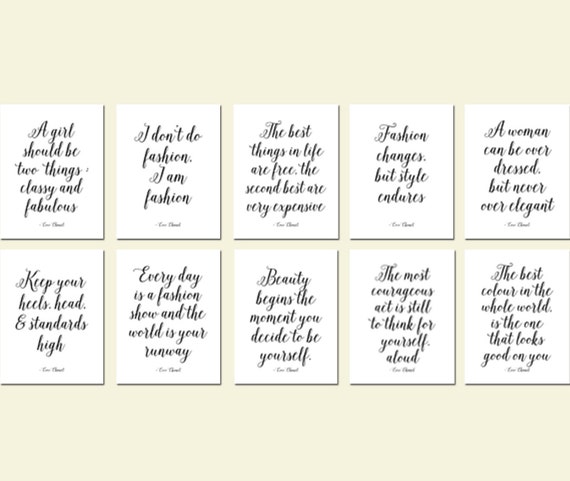 A girl
should be
two things :
classy and
fabulous
- Coco Chanel
I don't do
fashion,
I am
fashion
- Coco Chanel
The best
things in life
are free, the
second best are
very expensive
- Coco Chanel
Fashion
changes,
but style
endures
- Coco Chanel
A woman
can be over
dressed,
but never
over elegant
- Coco Chanel
Keep your
heels, head,
& standards
high
- Coco Chanel
Every day
is a fashion
show and the
world is your
runway
- Coco Chanel
Beauty
begins the
moment you
decide to be
yourself.
- Coco Chanel
The most
courageous
act is still
to think for
yourself,
aloud
- Coco Chanel
The best
colour in the
whole world,
is the one
that looks
good on you
- Coco Chanel